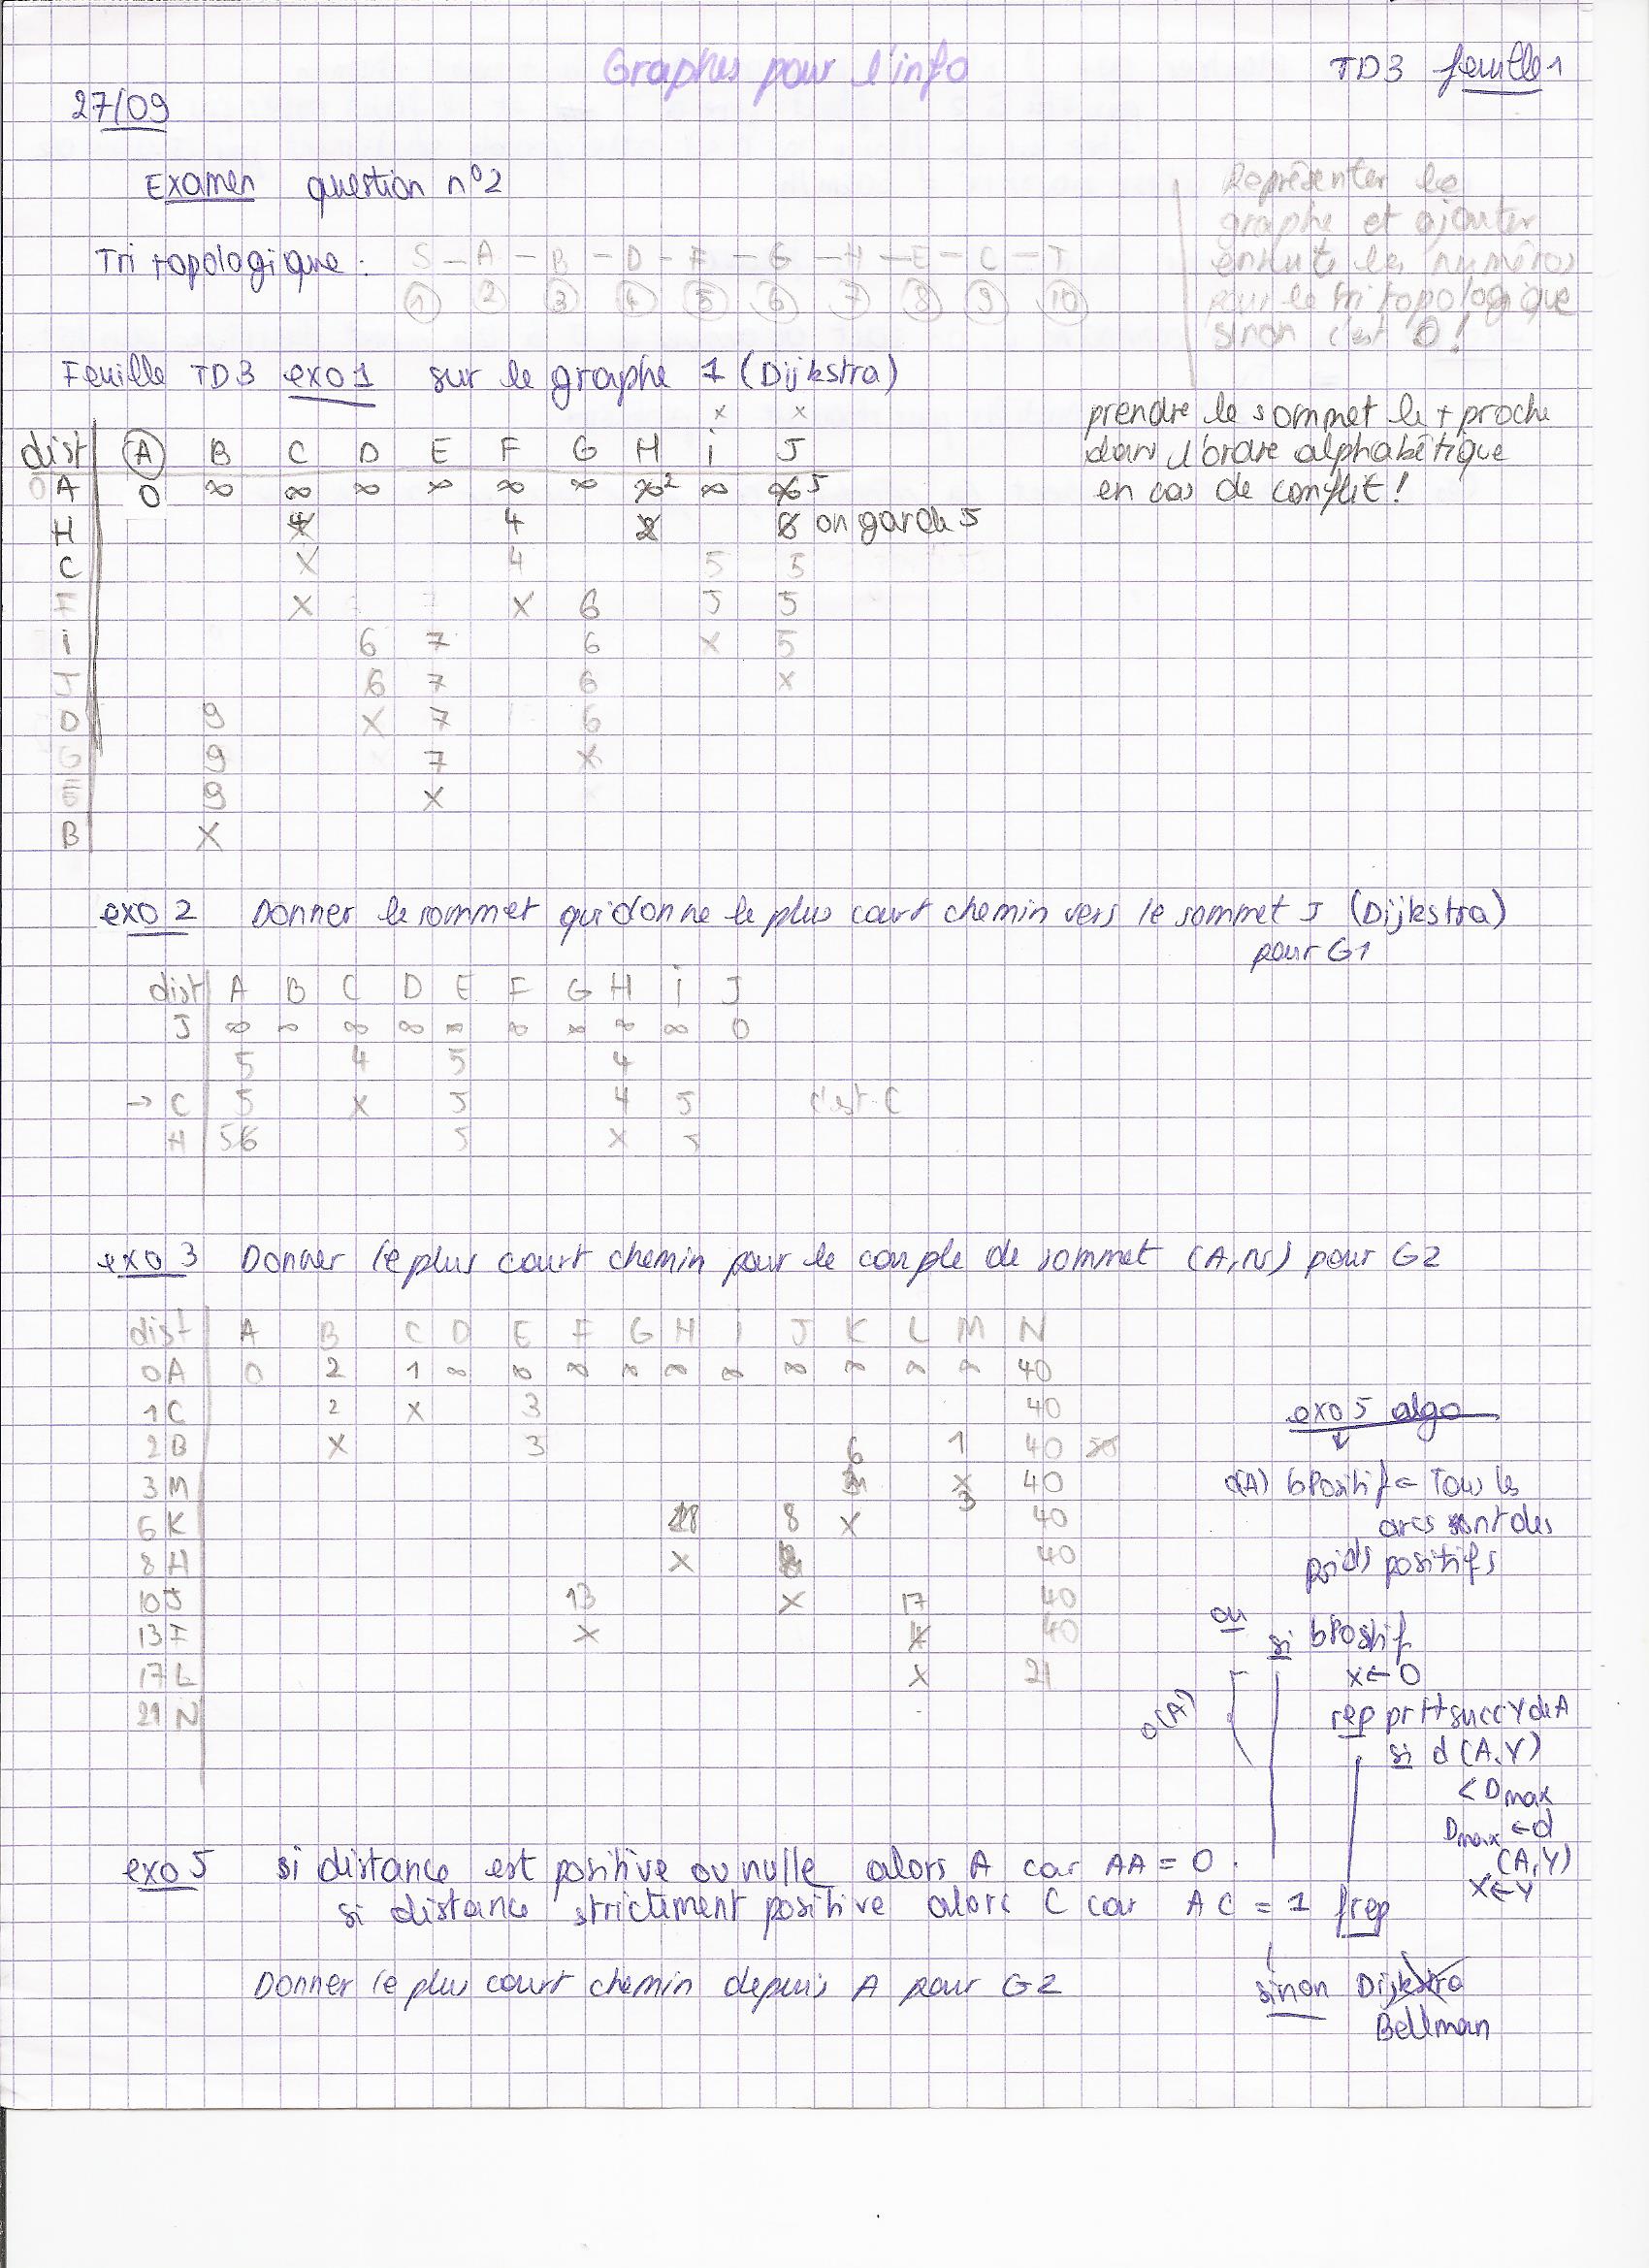 Graphes pour l'info
TD3 feuille 1
27/09
Examen question n°2
Tri topologique : S - A - B - D - F - G - H - E - C - T
1 2 3 4 5 6 7 8 9 10
Représenter le
graphe et ajouter
ensuite les numéros
pour le tri topologique
sinon c'est 0 !
Feuille TD3 exo 1 sur le graphe 1 (Dijkstra)
prendre le sommet le + proche
dans l'ordre alphabétique
en cas de conflit !
x x
dist A B C D E F G H i J
0 A 0 ∞ ∞ ∞ ∞ ∞ ∞ ∞ 2 ∞ ∞ 5
H 4 4 2 6 on garde 5
C X 4 5 5
F X X 6 5 5
i 6 7 6 x 5
J 6 7 6 x
D 9 X 7 6
G 9 7 X
E 9 X
B X
exo 2 Donner le sommet qui donne le plus court chemin vers le sommet J (Dijkstra)
pour G1
dist A B C D E F G H i J
J ∞ ∞ ∞ ∞ ∞ ∞ ∞ ∞ ∞ 0
5 4 5 4
→ C 5 X 5 4 5 c'est C
H 56 5 X 5
exo 3 Donner le plus court chemin pour le couple de sommet (A,N) pour G2
dist A B C D E F G H I J K L M N
0 A 0 2 1 ∞ ∞ ∞ ∞ ∞ ∞ ∞ ∞ ∞ ∞ 40
1 C 2 x 3 40
2 B X 3 6 1 40 50
3 M X 3 40
6 K 8 X 40
8 H X 40
10 J 13 X 17 40
13 F X 40
17 L X 21
21 N
exo 5 algo
↓
O(A) bPositif ← Tous les
arcs sont des
poids positifs
ou
si bPositif
x ← 0
O(A)
rep pr tt succ Y de A
si d(A,Y)
< Dmax
Dmax ← d
(A,Y)
X ← Y
frep
sinon Dijkstra
Bellman
exo 5 si distance est positive ou nulle alors A car AA = 0.
si distance strictement positive alors C car AC = 1
Donner le plus court chemin depuis A pour G2